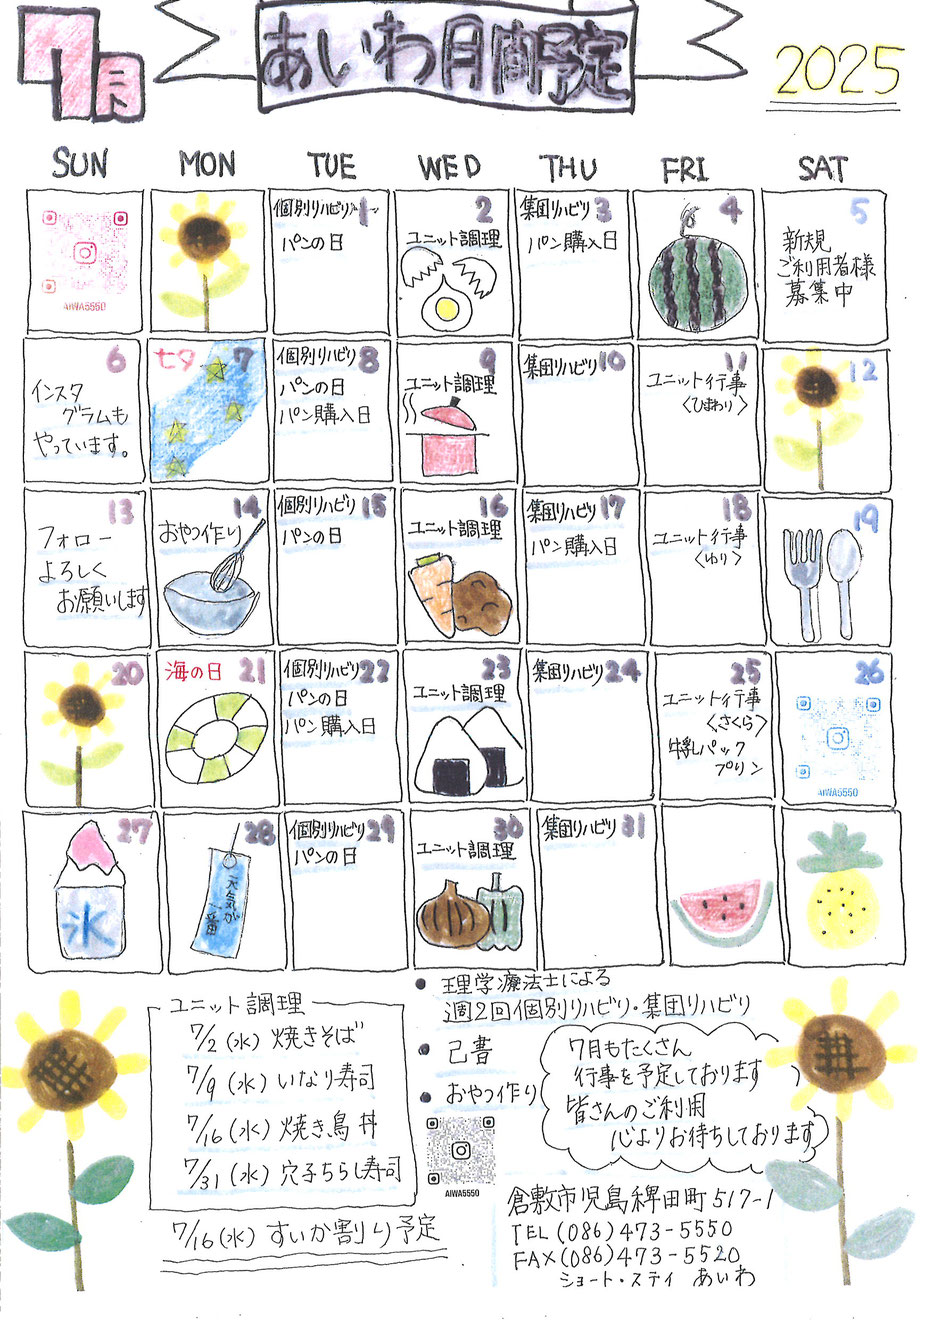 7月
ニト
あいわ月間予定
2025
SUN MON TUE WED THU FRI SAT
AIWA5550
個別リハビリ 1
パンの日
2
ユニット調理
集団リハビリ 3
パン購入日
4
5
新規
ご利用者様
募集中
6
インスタ
グラムも
やっています。
七夕 7
個別リハビリ 8
パンの日
パン購入日
9
ユニット調理
集団リハビリ 10
11
ユニット行事
〈ひまわり〉
12
13
フォロー
よろしく
お願いします
14
おやつ作り
個別リハビリ 15
パンの日
16
ユニット調理
集団リハビリ 17
パン購入日
18
ユニット行事
〈ゆり〉
19
20
海の日 21
個別リハビリ 22
パンの日
パン購入日
23
ユニット調理
集団リハビリ 24
25
ユニット行事
〈さくら〉
牛乳パック
プリン
26
AIWA5550
27
氷
28
天気が
一番
個別リハビリ 29
パンの日
30
ユニット調理
集団リハビリ 31
ユニット調理
7/2(水) 焼きそば
7/9(水) いなり寿司
7/16(水) 焼き鳥丼
7/31(水) 穴子ちらし寿司
7/16(水) すいか割り予定
● 理学療法士による
週2回個別リハビリ・集団リハビリ
● 己書
● おやつ作り
AIWA5550
7月もたくさん
行事を予定しております
皆さんのご利用
心よりお待ちしております
倉敷市児島稗田町517-1
TEL(086)473-5550
FAX(086)473-5520
ショート・ステイ あいわ